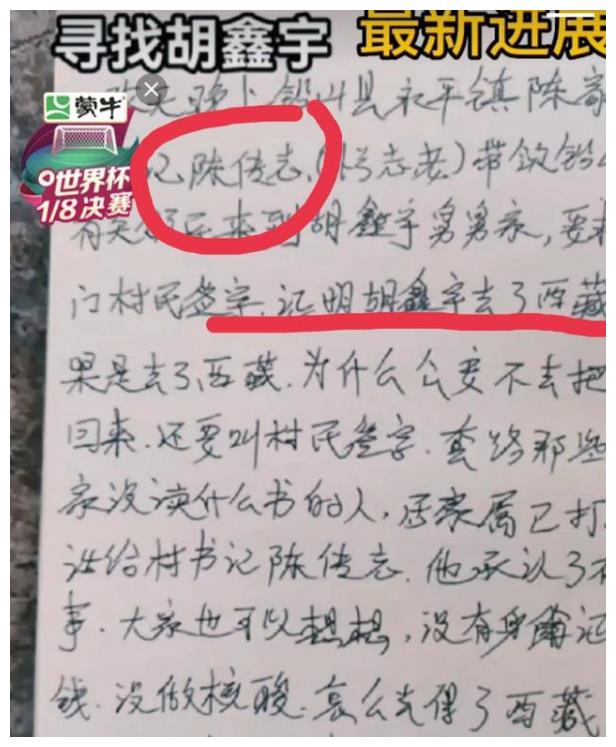 寻找胡鑫宇 最新进展
昨天晚上铅山县永平镇陈寄
蒙牛
记陈传志(外号志老)带领铅山
世界杯
1/8决赛
来到胡鑫宇舅舅家,要求
门村民签字.证明胡鑫宇去了西藏
果是去了西藏.为什么公安不去把
回来.还要叫村民签字.套路那些
家没读什么书的人,后家属已打
话给村书记陈传志.他承认了有
事.大家也可以想想,没有身份证
钱.没做核酸.怎么走得了西藏